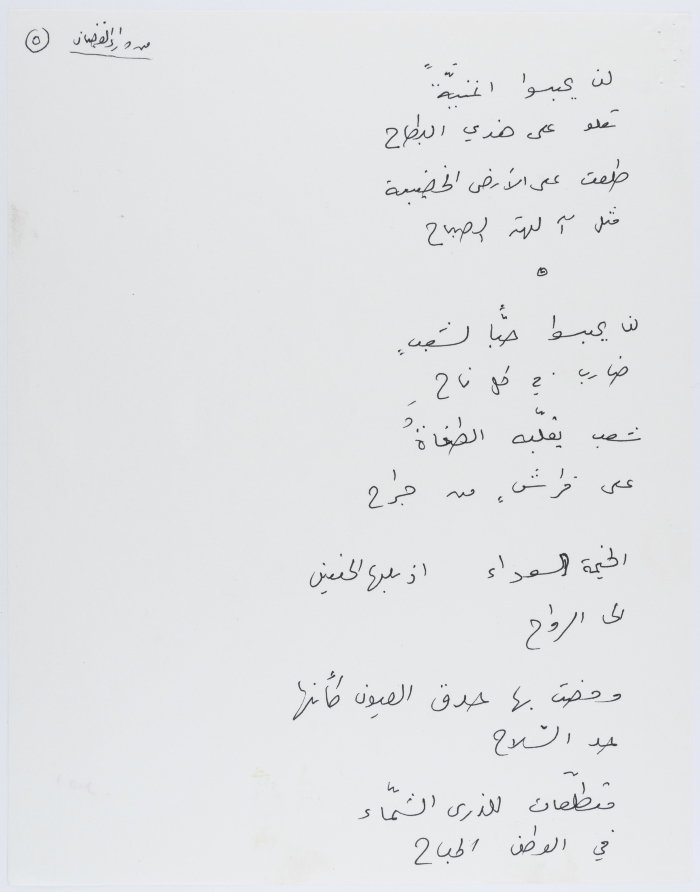 من وراء القضبان ٥
لن يحبسوا أغنيّةً
تعلو على هذي البطاح
طلعت على الأرض الخضيبة
مثل آلهة الصباح
لن يحبسوا حبًّا لشعبٍ
ضارب في كل ناحِ
شعب يقلّبه الطغاةُ
على فراشٍ من جراح
الخيمة السوداء اذبلها الحنين
الى الرواح
ومضت بها حدق العيون كأنها
حد السّلاح
متطلّعات للذرى الشمّاء
في الوطن المباح